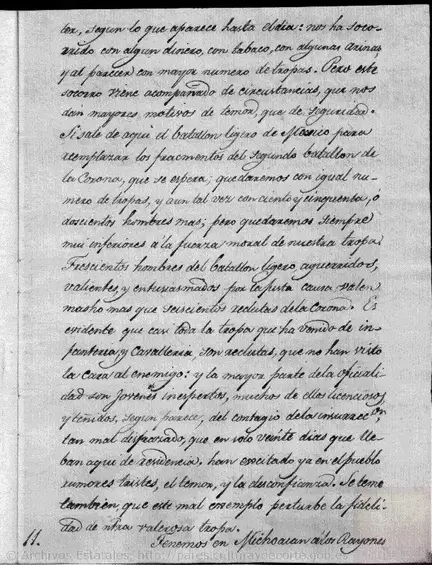 tor, segun lo que aparece hasta el dia: nos ha soco-
rrido con algun dinero, con tabaco, con algunas arinas
y al parecer con mayor numero de tropas. Pero este
socorro viene acompañado de circustancias, que nos
dan mayores motivos de temor, que de seguridad.
Si sale de aqui el batallon ligero de Mexico para
remplazar los fracmentos del segundo batallon de
la Corona, que se espera; quedaremos con igual nu-
mero de tropas, y aun tal vez con ciento y cinquenta, ó
doscientos hombres mas; pero quedaremos siempre
mui inferiores a la fuerza moral de nuestra tropa.
Trescientos hombres del batallon ligero aguerridos,
valientes, y entusiasmados por la justa causa valen
mucho mas que seiscientos reclutas de la Corona. Es
evidente que casi toda la tropa que ha venido de in-
fanteria y Cavalleria, son reclutas, que no han visto
la cara al enemigo: y la mayor parte de la oficiali-
dad son jovenes inexpertos, muchos de ellos licenciosos
y teñidos, segun parece, del contagio de la insurrecon,
tan mal disfrazado, que en solo veinte dias que lle-
ban aqui de residencia, han excitado ya en el pueblo
rumores tristes, el temor, y la desconfianza. Se teme
tambien, que este mal exemplo perturbe la fideli-
dad de nira valerosa tropa.
11. Tenemos en Michoacan a los Rayones
© Archivos Estatales, http://pares.culturaydeporte.gob.es